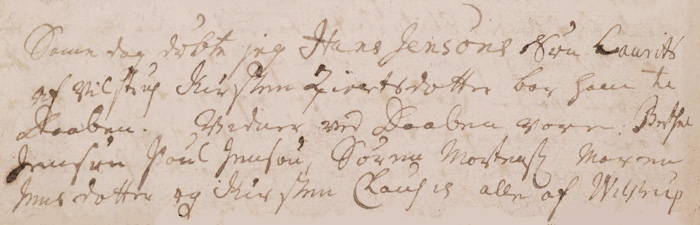 Same dag døbte jeg Hans Jensøns Søn Laurits
af Vilstrup Kirsten Zivertsdotter bar ham te
Daaben. Vidner ved Daaben vare. Berthe
Jensøn Poul Jensøn, Søren Mortens Maren
Jensdotter og Kirsten Claus is alle af Wilstrup